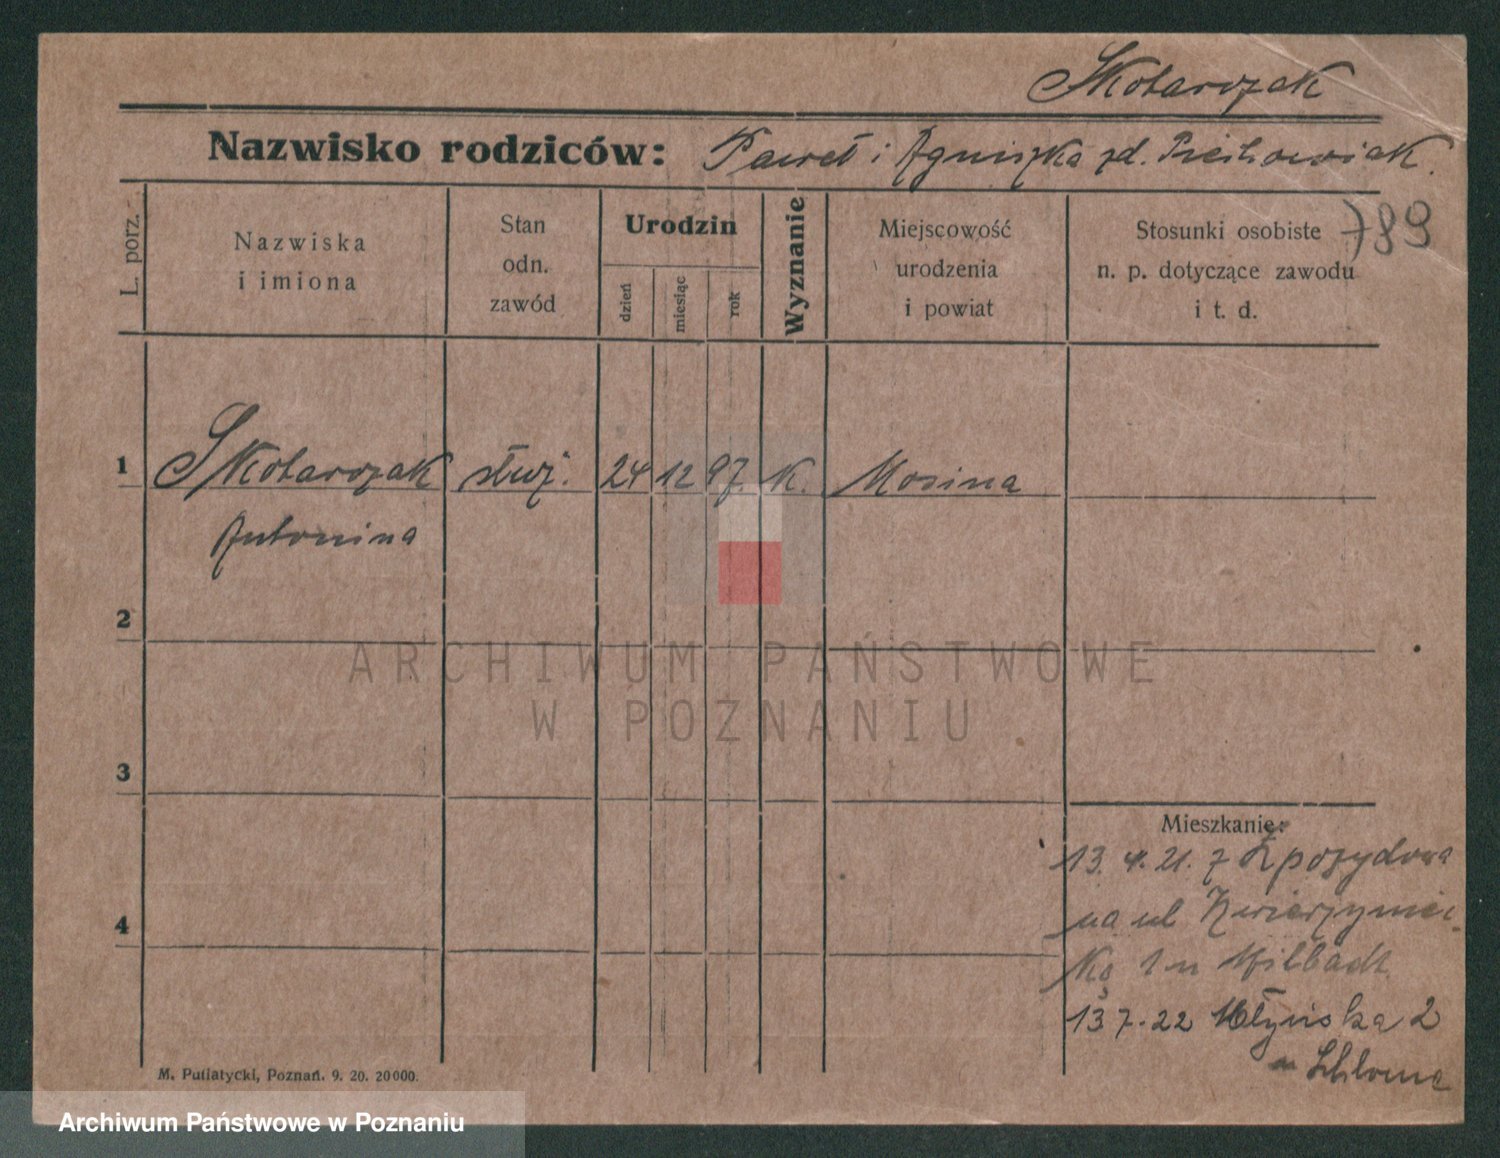 Skotarczak
Nazwisko rodziców: Paweł i Agniszka zd. Piechowiak.
789
L. porz.
Nazwiska
i imiona
Stan
odn.
zawód
Urodzin
dzień
miesiąc
rok
Wyznanie
Miejscowość
urodzenia
i powiat
Stosunki osobiste
n. p. dotyczące zawodu
i t. d.
1 Skotarczak służ. 24 12 97. K. Mosina
Antonina
2
3
4
Mieszkanie:
13. 4. 21. z Zposydowa
na ul Zwierzyniec-
ką 1 u Milbadt
13 7. 22 Młyńska 2
u
M. Putiatycki, Poznań. 9. 20. 20000.
ARCHIWUM PAŃSTWOWE
W POZNANIU
Archiwum Państwowe w Poznaniu